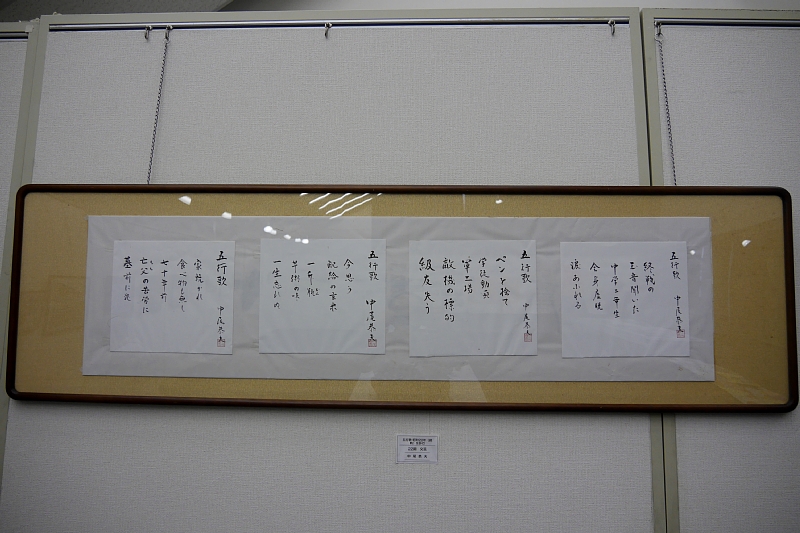 五行歌
中尾
終戦の
玉音聞いた
中学二年生
全身虚脱
涙あふれる
五行歌
中尾
ペンを捨て
学徒動員
軍工場
敵機の標的
級友失う
五行歌
中尾
今思う
配給の玄米
一升瓶
半搗の味
一生忘れぬ
五行歌
中尾
家焼かれ
食べ物も無く
七十年前
亡父の苦労に
墓前に花